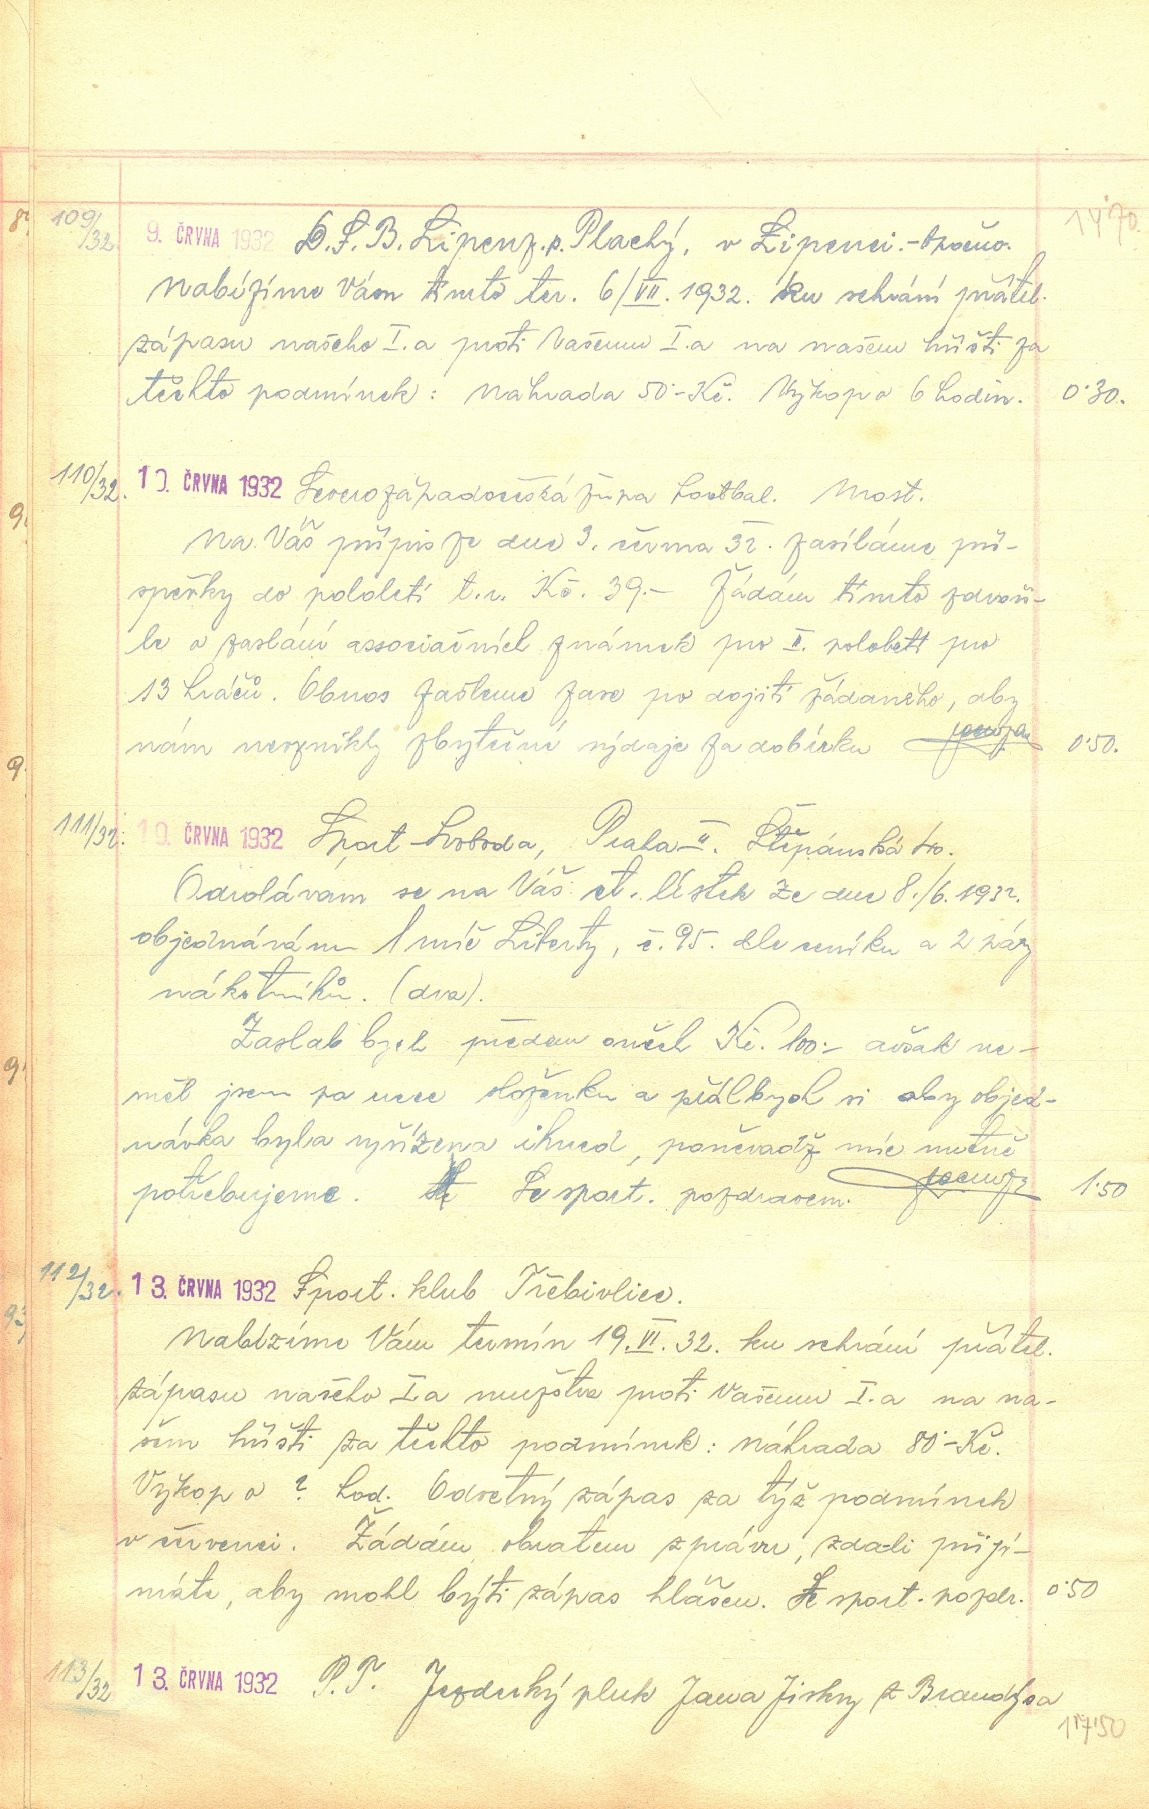 14'70
109/32. 9. ČRVNA 1932 D.F.B. Lipenz. p. Plachý. v Lipenci.-
Nabízíme Vám tímto ter. 6/VII. 1932. ku sehrání přátel.
zápasu našeho I.a proti Vašemu I.a na našem hřišti za
těchto podmínek: Náhrada 50·- Kč. Výkop o 6 hodin. 0·30.
110/32. 10. ČRVNA 1932 Severozápadočeská župa footbal. Most.
Na Váš přípis ze dne 3. června 32. zasíláme pří-
spěvky do pololetí t.r. Kč. 39.- Žádám tímto zdvoři-
le o zaslání associačních známek pro II. pololetí pro
13 hráčů. Obnos zašleme zase po dojití žádaného, aby
nám nevznikly zbytečné výdaje za dobírku 0·50.
111/32. 10. ČRVNA 1932 Sport-Svoboda, Praha-II. Štěpánská
Odvolávám se na Váš ct. lístek ze dne 8./6. 1932.
objednávám 1 míč Liberty, č. 95. dle ceníku a 2 páry
nákotníků. (dva).
Zaslal bych předem oněch Kč. 100·- avšak ne-
měl jsem po ruce složenku a přál bych si aby objed-
návka byla vyřízena ihned, poněvadž míč nutně
potřebujeme. Se sport. pozdravem. 1·50
112/32. 13. ČRVNA 1932 Sport. klub Třebivlice.
Nabízíme Vám termín 19. VI. 32. ku sehrání přátel.
zápasu našeho I.a mužstva proti Vašemu I.a na na-
šem hřišti za těchto podmínek: Náhrada 80·- Kč.
Výkop o ? hod. Odvetný zápas za týž podmínek
v červenci. Žádám obratem zprávu, zda-li přijí-
máte, aby mohl býti zápas hlášen. Se sport. pozdr. 0·50
113/32 13. ČRVNA 1932 P.T. Jezdecký pluk Jana Jiskry z Brandýsa
17'50